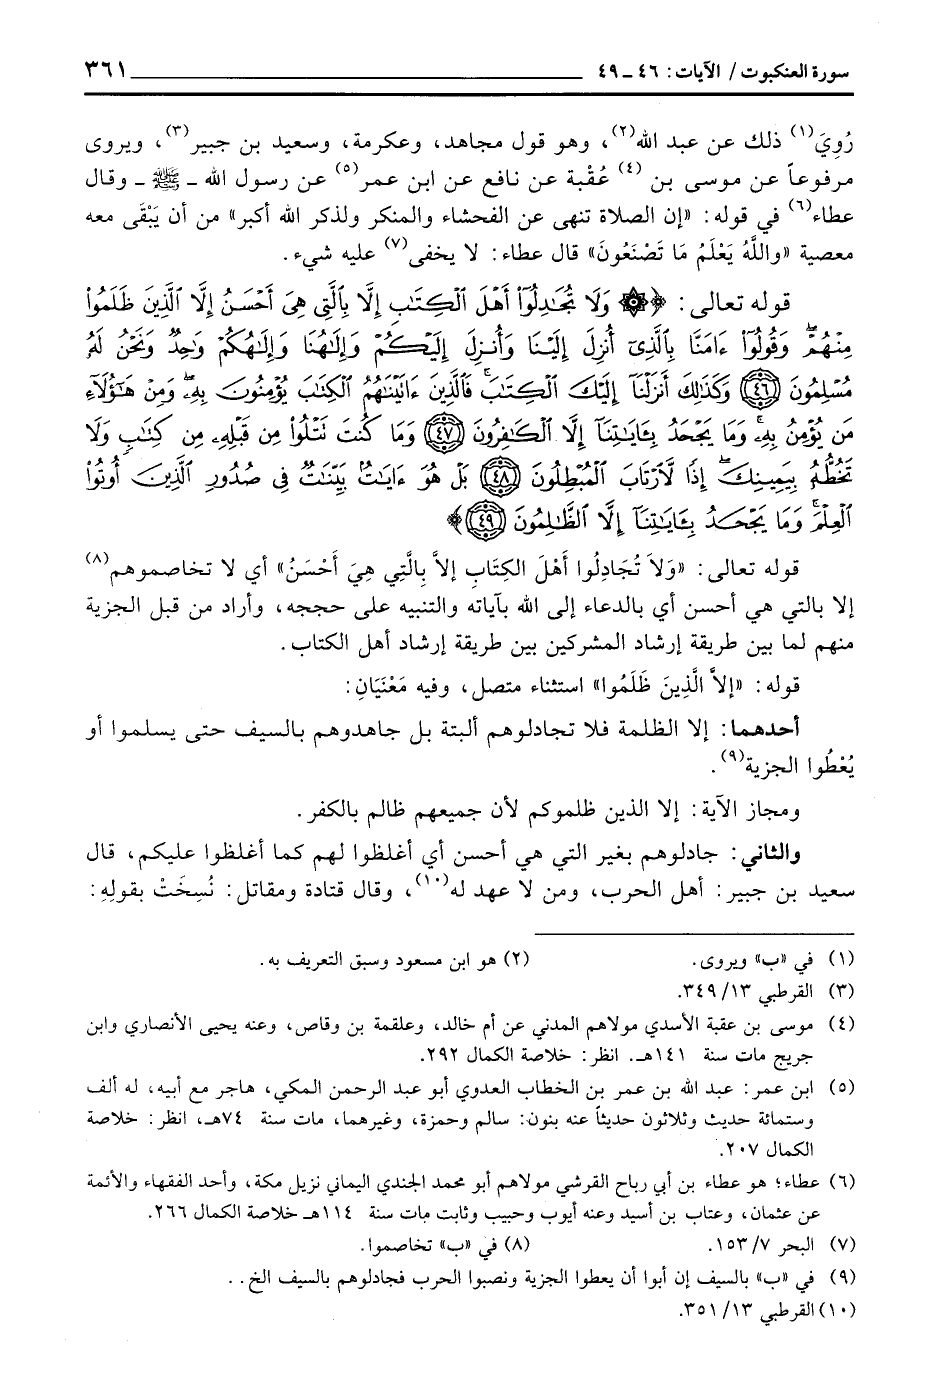 سورة العنكبوت / الآيات: ٤٦ ـ ٤٩ ٣٦١
رُوِيَ(١) ذلك عن عبد الله(٢)، وهو قول مجاهد، وعكرمة، وسعيد بن جبير(٣)، ويروى
مرفوعاً عن موسى بن (٤) عُقْبة عن نافع عن ابن عمر(٥) عن رسول الله ـ ﷺ ـ وقال
عطاء(٦) في قوله: «إن الصلاة تنهى عن الفحشاء والمنكر ولذكر الله أكبر» من أن يَبْقَى معه
معصية «واللَّهُ يَعْلَمُ مَا تَصْنَعُونَ» قال عطاء: لا يخفى(٧) عليه شيء.
قوله تعالى: ﴿۞ وَلَا تُجَٰدِلُوٓا۟ أَهْلَ ٱلْكِتَٰبِ إِلَّا بِٱلَّتِى هِىَ أَحْسَنُ إِلَّا ٱلَّذِينَ ظَلَمُوا۟
مِنْهُمْ ۖ وَقُولُوٓا۟ ءَامَنَّا بِٱلَّذِىٓ أُنزِلَ إِلَيْنَا وَأُنزِلَ إِلَيْكُمْ وَإِلَٰهُنَا وَإِلَٰهُكُمْ وَٰحِدٌ وَنَحْنُ لَهُۥ
مُسْلِمُونَ ٤٦ وَكَذَٰلِكَ أَنزَلْنَآ إِلَيْكَ ٱلْكِتَٰبَ ۚ فَٱلَّذِينَ ءَاتَيْنَٰهُمُ ٱلْكِتَٰبَ يُؤْمِنُونَ بِهِۦ ۖ وَمِنْ هَٰٓؤُلَآءِ
مَن يُؤْمِنُ بِهِۦ ۚ وَمَا يَجْحَدُ بِـَٔايَٰتِنَآ إِلَّا ٱلْكَٰفِرُونَ ٤٧ وَمَا كُنتَ تَتْلُوا۟ مِن قَبْلِهِۦ مِن كِتَٰبٍ وَلَا
تَخُطُّهُۥ بِيَمِينِكَ ۖ إِذًا لَّٱرْتَابَ ٱلْمُبْطِلُونَ ٤٨ بَلْ هُوَ ءَايَٰتٌۢ بَيِّنَٰتٌ فِى صُدُورِ ٱلَّذِينَ أُوتُوا۟
ٱلْعِلْمَ ۚ وَمَا يَجْحَدُ بِـَٔايَٰتِنَآ إِلَّا ٱلظَّٰلِمُونَ ٤٩﴾
قوله تعالى: «وَلاَ تُجَادِلُوا أَهْلَ الكِتَابِ إلاَّ بِالَّتِي هِيَ أَحْسَنُ» أي لا تخاصموهم(٨)
إلا بالتي هي أحسن أي بالدعاء إلى الله بآياته والتنبيه على حججه، وأراد من قبل الجزية
منهم لما بين طريقة إرشاد المشركين بين طريقة إرشاد أهل الكتاب.
قوله: «إلاَّ الَّذِينَ ظَلَمُوا» استثناء متصل، وفيه مَعْنَيَانِ:
أحدهما: إلا الظلمة فلا تجادلوهم ألبتة بل جاهدوهم بالسيف حتى يسلموا أو
يُعْطُوا الجزية(٩).
ومجاز الآية: إلا الذين ظلموكم لأن جميعهم ظالم بالكفر.
والثاني: جادلوهم بغير التي هي أحسن أي أغلظوا لهم كما أغلظوا عليكم، قال
سعيد بن جبير: أهل الحرب، ومن لا عهد له(١٠)، وقال قتادة ومقاتل: نُسِخَتْ بقولِهِ:
(١) في «ب» ويروى. (٢) هو ابن مسعود وسبق التعريف به.
(٣) القرطبي ١٣/ ٣٤٩.
(٤) موسى بن عقبة الأسدي مولاهم المدني عن أم خالد، وعلقمة بن وقاص، وعنه يحيى الأنصاري وابن
جريج مات سنة ١٤١هـ. انظر: خلاصة الكمال ٢٩٢.
(٥) ابن عمر: عبد الله بن عمر بن الخطاب العدوي أبو عبد الرحمن المكي، هاجر مع أبيه، له ألف
وستمائة حديث وثلاثون حديثاً عنه بنون: سالم وحمزة، وغيرهما، مات سنة ٧٤هـ، انظر: خلاصة
الكمال ٢٠٧.
(٦) عطاء؛ هو عطاء بن أبي رباح القرشي مولاهم أبو محمد الجندي اليماني نزيل مكة، وأحد الفقهاء والأئمة
عن عثمان، وعتاب بن أسيد وعنه أيوب وحبيب وثابت مات سنة ١١٤هـ خلاصة الكمال ٢٦٦.
(٧) البحر ٧/ ١٥٣. (٨) في «ب» تخاصموا.
(٩) في «ب» بالسيف إن أبوا أن يعطوا الجزية ونصبوا الحرب فجادلوهم بالسيف الخ. .
(١٠) القرطبي ١٣/ ٣٥١.